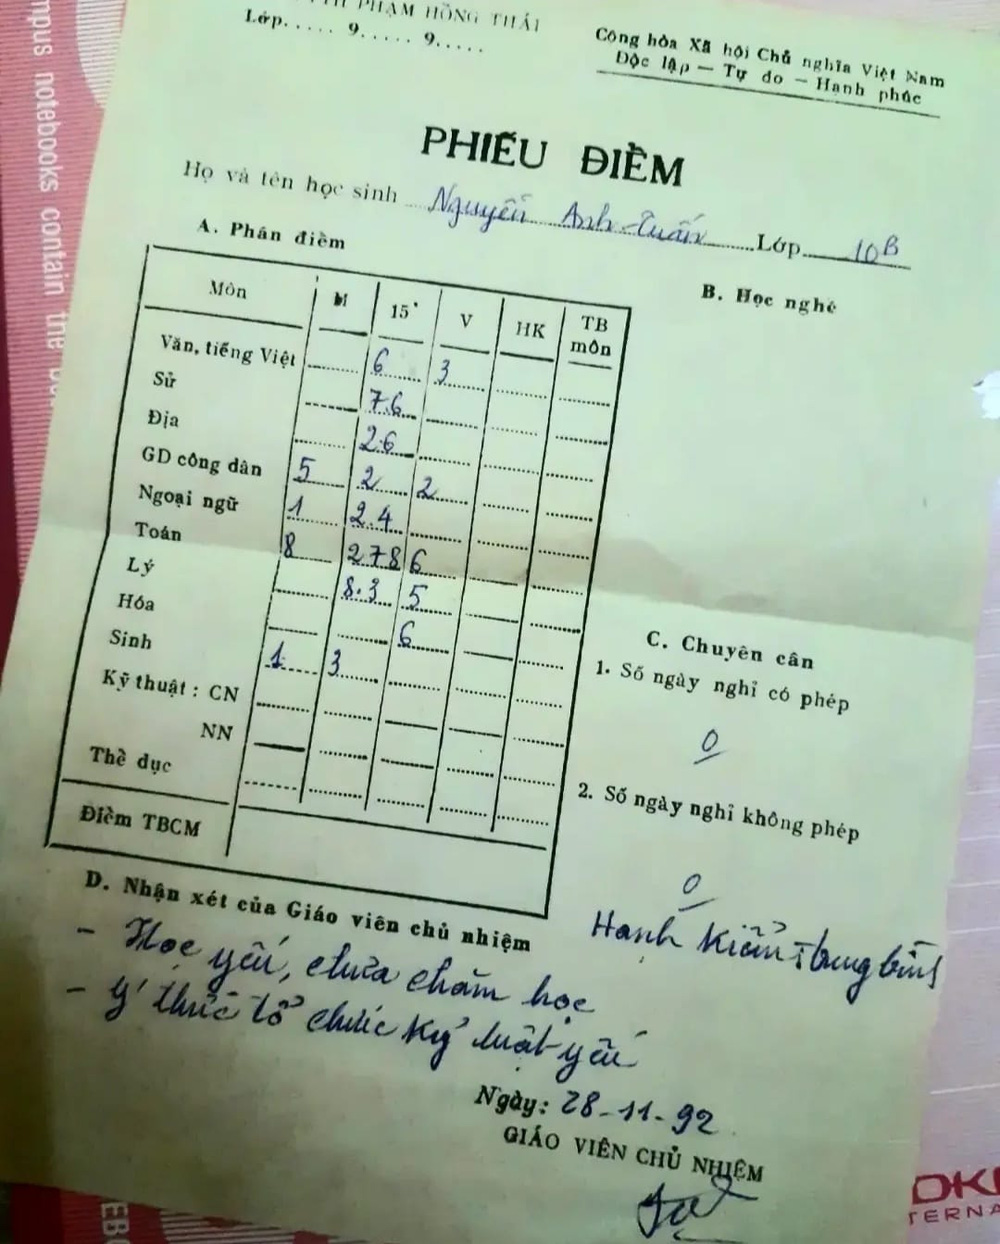 PHẠM HỒNG THÁI
Lớp..... 9..... 9.....
Công hòa Xã hội Chủ nghĩa Việt Nam
Độc lập — Tự do — Hạnh phúc
PHIẾU ĐIỂM
Họ và tên học sinh Nguyễn Anh Tuấn Lớp 10B
A. Phân điểm
B. Học nghề
Môn M 15' V HK TB môn
Văn, tiếng Việt 6 3
Sử 7.6
Địa 2.6
GD công dân 5 2 2
Ngoại ngữ 1 2.4
Toán 8 2 7 8 6
Lý 8.3 5
Hóa 6
Sinh 1 3
Kỹ thuật : CN
NN
Thể dục
Điểm TBCM
C. Chuyên cần
1. Số ngày nghỉ có phép
0
2. Số ngày nghỉ không phép
0
Hạnh kiểm: trung bình
D. Nhận xét của Giáo viên chủ nhiệm
- Học yếu, chưa chăm học
- Ý thức tổ chức kỷ luật yếu
Ngày: 28-11-92
GIÁO VIÊN CHỦ NHIỆM
mpus notebooks contain the